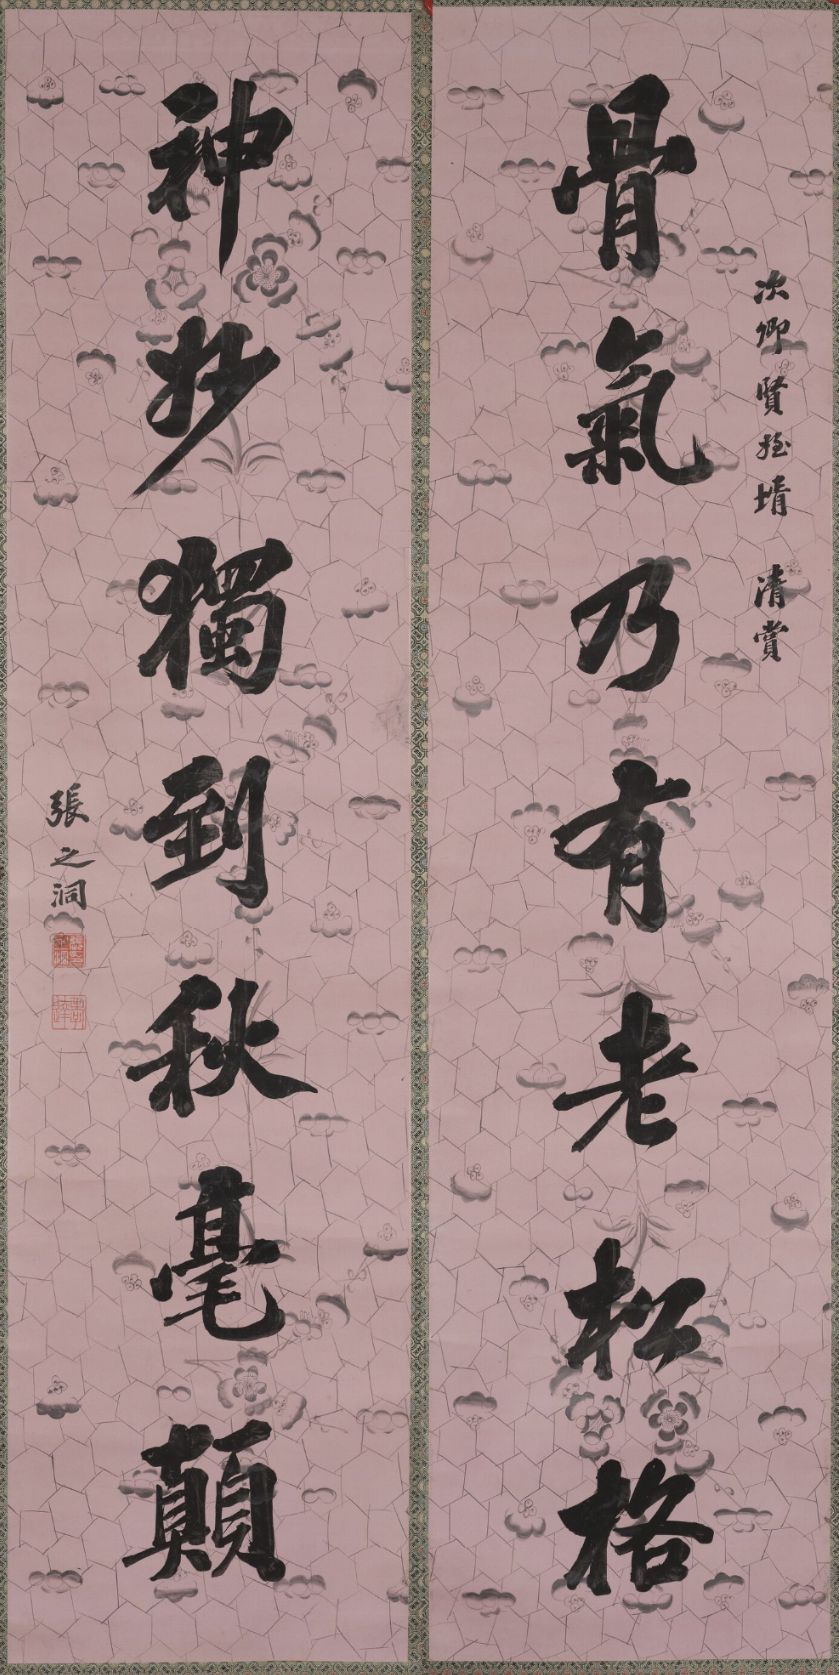 骨氣乃有老松格
次卿賢姪壻 清賞
神妙獨到秋毫顛
張之洞